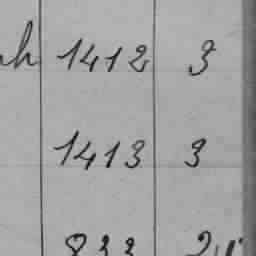 1412 3
1413 3
833